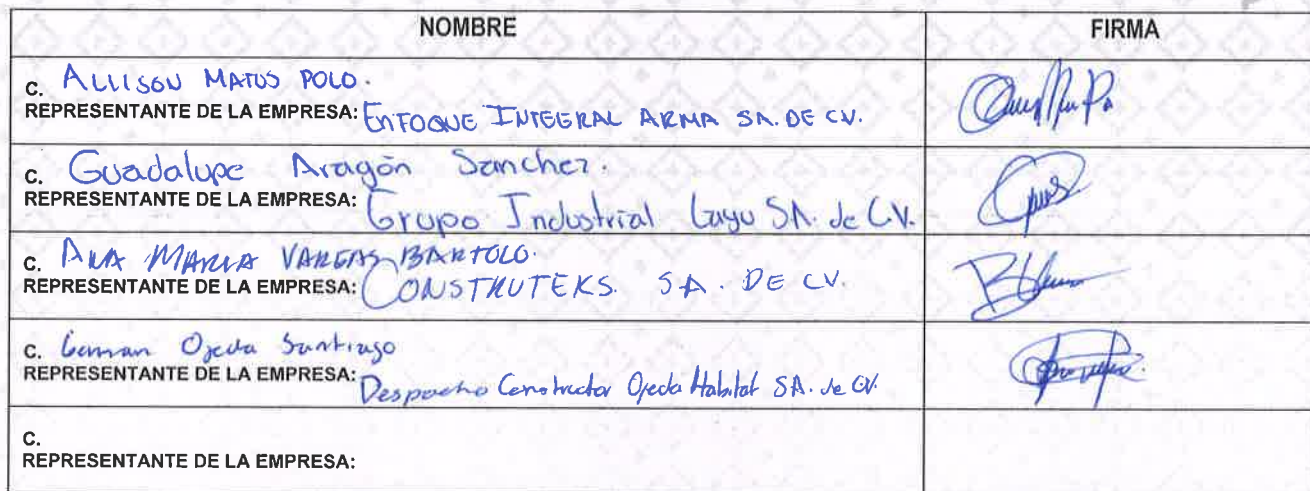 NOMBRE FIRMA
C. ALLISON MATUS POLO.
REPRESENTANTE DE LA EMPRESA: ENFOQUE INTEGRAL ARMA SA. DE CV.
C. Guadalupe Aragón Sanchez.
REPRESENTANTE DE LA EMPRESA: Grupo Industrial SA. de C.V.
C. ANA MARIA VARGAS BARTOLO.
REPRESENTANTE DE LA EMPRESA: CONSTRUTEKS. SA. DE CV.
C. Ojeda Santiago
REPRESENTANTE DE LA EMPRESA: Despacho Constructor Ojeda Habitat SA. de CV.
C.
REPRESENTANTE DE LA EMPRESA: